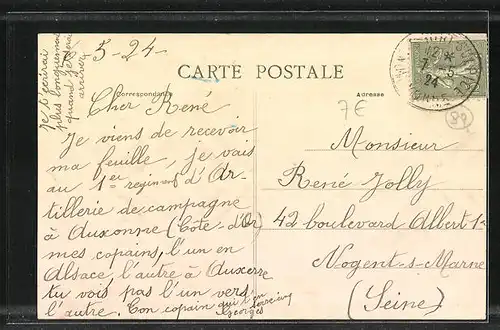 5-24-
CARTE POSTALE
Correspondance
Adresse
Je t'écrirai
plus longuement
quand je serai
arrivé
Cher René
Je viens de recevoir
ma feuille, je vais
au 1er régiment d'Ar-
tillerie de campagne
à Auxonne (Côte-d'Or)
mes copains, l'un en
Alsace, l'autre à Auxerre
tu vois pas l'un vers
l'autre. Ton copain qui t'en
Georges
7€
88
Monsieur
René Jolly
42 boulevard Albert 1er
Nogent-s-Marne
(Seine)
24